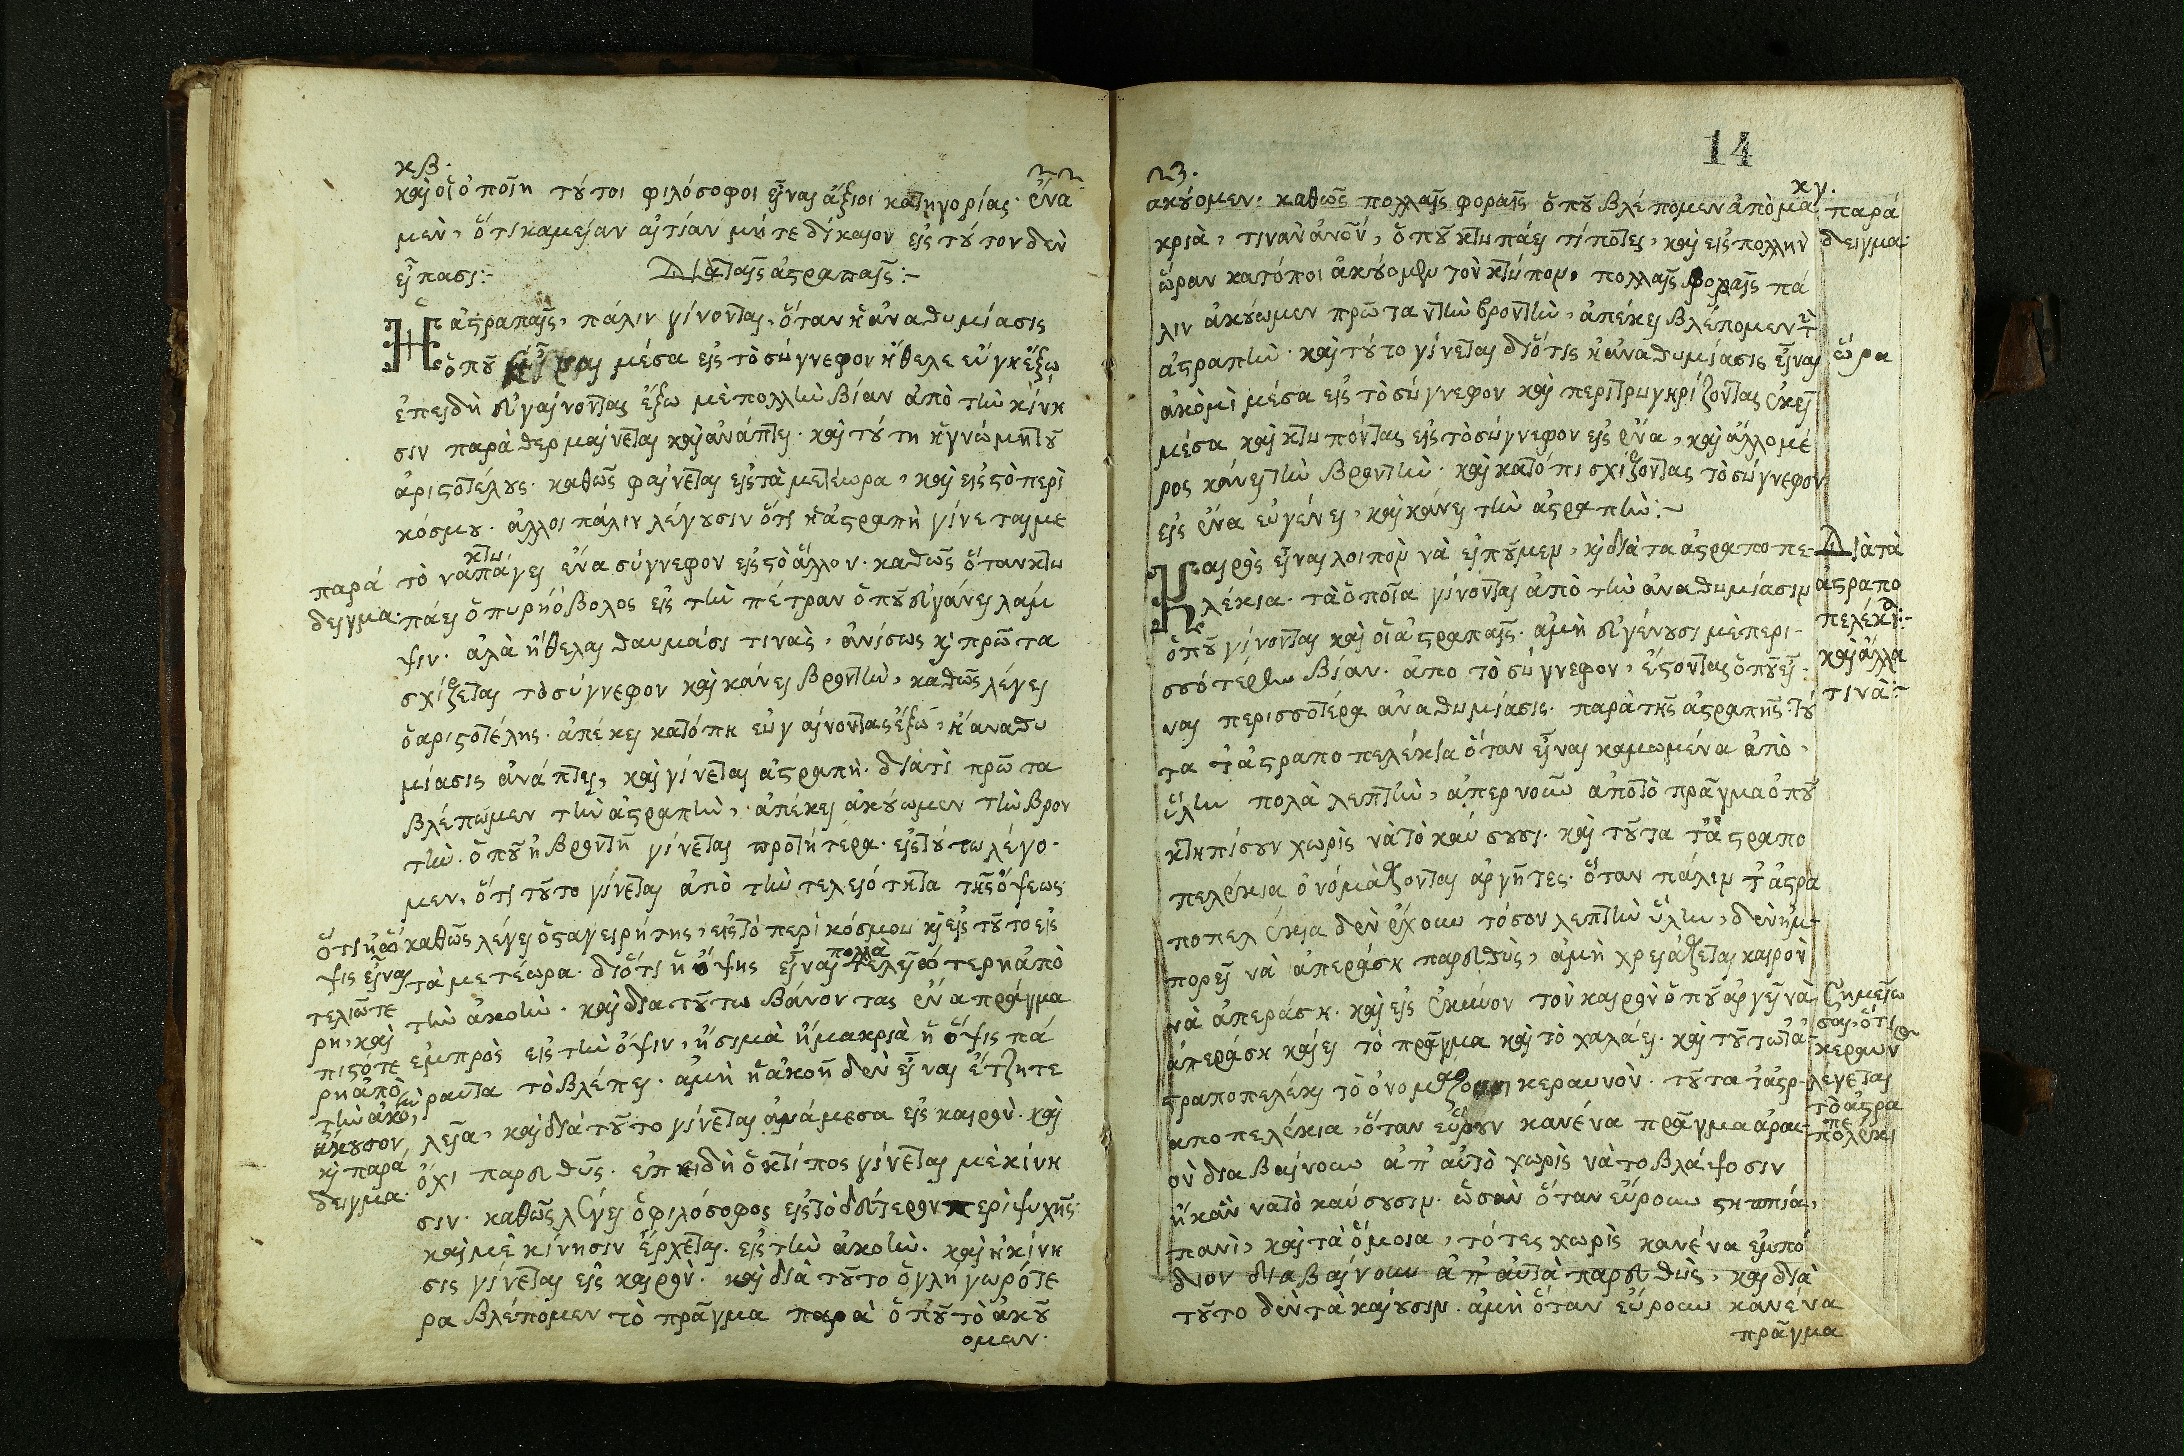 κβ.
22
καὶ οἱ ὁποῖη τούτοι φιλόσοφοι εἶναι ἄξιοι κατηγορίας· ἕνα
μὲν, ὅτι καμείαν αἰτίαν μήτε δίκαιον εἰς τούτον δὲν
εἴπασι:-
Διὰ ταῖς ἀστραπαῖς:-
Ἡ ἀστραπαῖς, πάλιν γίνονται, ὅταν ἡ ἀναθυμίασις
ὁποῦ εἶναι μέσα εἰς τὸ σύγνεφον ἤθελε εὔγη ἔξω
ἐπειδὴ εὐγαίνοντας ἔξω μὲ πολλὴν βίαν ἀπὸ τὴν κίνη
σιν παρὰ θερμαίνεται καὶ ἀνάπτει· καὶ τούτη ἡ γνώμη τοῦ
ἀριστοτέλους· καθὼς φαίνεται εἰς τὰ μετέωρα, καὶ εἰς τὸ περὶ
κόσμου. ἄλλοι πάλιν λέγουσιν ὅτι ἡ ἀστραπὴ γίνεται με
κτυ
τὸ ναπάγει ἕνα σύγνεφον εἰς τὸ ἄλλον· καθὼς ὅταν κτυ
παρά
δειγμα·
πάει ὁ πυρηόβολος εἰς τὴν πέτραν ὁποῦ εὐγάνει λάμ
ψιν· ἀλὰ ἤθελαι θαυμάσι τινὰς, ἀνίσως κὶ πρῶτα
σχίζεται τὸ σύγνεφον καὶ κάνει βροντὴν, καθὼς λέγει
ὁ ἀριστοτέλης· ἀπέκει κατόπη εὐγαίνοντας ἔξω, ἡ ἀναθυ
μίασις ἀνάπτει, καὶ γίνεται ἀστραπὴ· διάτὶ πρῶτα
βλέπωμεν τὴν ἀστραπὴν, ἀπέκει ἀκούωμεν τὴν βρον
τὴν· ὁποῦ ἡ βροντὴ γίνεται προτήτερα· εἰς τούτω λέγο-
μεν, ὅτι τοῦτο γίνεται ἀπὸ τὴν τελειότητα τῆς ὄψεως·
καθὼς λέγει ὁ σταγειρήτης, εἰς τὸ περὶ κόσμου κὶ εἰς τοῦτο εἰς
πολλὰ
τὰ μετέωρα· διότι ἡ ὄψης εἶναι τελειότερη ἀπὸ
τὴν ἀκοὴν· καὶ δια τοῦτω βάνοντας ἕνα πράγμα
ἐμπρὸς εἰς τὴν ὄψιν, ἢ σιμὰ ἢ μακριὰ ἡ ὄψις πά
ραυτα τὸ βλέπει· ἀμὴ ἡ ἀκοὴ δὲν εἶναι ἔτζη τε
λεία, καὶ διὰ τοῦτο γίνεται ἀνάμεσα εἰς καιρὸν· καὶ
ὄχι παρευθὺς· ἐπειδὴ ὁ κτίπος γίνεται μὲ κίνη
σιν· καθὼς λέγει ὁ φιλόσοφος εἰς τὸ δεύτερον περὶ ψυχῆς·
καὶ μὲ κίνησιν ἔρχεται· εἰς τὴν ἀκοὴν· καὶ ἡ κίνη
σις γίνεται εἰς καιρὸν· καὶ διὰ τοῦτο ὀγλήγωρότε
ρα βλέπομεν τὸ πρᾶγμα παρὰ ὁποῦ τὸ ἀκοῦ
ομεν·
ὅτι ἡ ὄ
ψις εἶναι
τελιώτε
ρη, καὶ
πιστότε
ρη ἀπὸ
τὴν ἀκοὴν,
ἄκουσον
κὶ παρά
δειγμα·
23.
14
κγ.
ακούομεν· καθὼς πολλαῖς φοραῖς ὁποῦ βλέπομεν ἀπὸ μα
κριὰ, τινὰν ἀνοῦν, ὁποῦ κτυπάει τίποτες, καὶ εἰς πολλὴν
ὥραν κατόποι ἀκούομεν τὸν κτύπον, πολλαῖς φοραῖς πά
λιν ἀκούωμεν πρῶτα τὴν βροντὴν, ἀπέκει βλέπομεν τ
ἀστραπὴν· καὶ τούτο γίνεται διότις ἡ ἀναθυμίασις εἶναι
ἀκόμὶ μέσα εἰς τὸ σύγνεφον καὶ περιτρυγηρίζοντας ἐκεῖ
μέσα καὶ κτυπόντας εἰς τὸ σύγνεφον εἰς ἕνα, καὶ ἄλλο μέ
ρος κάνει τὴν βροντὴν· καὶ κατόπι σχίζοντας τὸ σύγνεφον
εἰς ἕνα εὐγένει, καὶ κάνει τὴν ἀστραπὴν:~
παρά
δειγμα·
ὥρα
Καιρὸς εἶναι λοιπὸν νὰ εἰποῦμεν, κὶ διὰ τα ἀστραποπε-
λέκια· τὰ ὁποῖα γίνονται ἀπὸ τὴν ἀναθυμίασιν
ὁποῦ γίνονται καὶ οἱ ἀστραπαῖς· ἀμὴ εὐγένουσι μὲ περι-
σσότερην βίαν· ἀπο τὸ σύγνεφον, ἔστοντας ὁποῦ εἶ-
ναι περισσοτέρα ἀναθυμίασις· παρὰ τῆς ἀστραπῆς· τού
τα τ ἀστραποπελέκια ὅταν εἶναι καμωμένα ἀπὸ,
ὕλην πολὰ λεπτὴν, ἀπερνοῦν ἀπὸ τὸ πρᾶγμα ὁποῦ
κτηπίσουν χωρὶς νὰ τὸ καύσουσι· καὶ τοῦτα τ ἀστραπο
πελέκια ὀνόμάζονται ἀργῆτες· ὅταν πάλιν τ ἀστρα
ποπελέκια δὲν ἔχουν τόσον λεπτὴν ὕλην, δὲν ἠμ-
πορεῖ νὰ ἀπεράση παρευθὺς, ἀμὴ χρειάζεται καιρὸν
νὰ ἀπεράση· καὶ εἰς ἐκεῖνον τὸν καιρὸν ὁποῦ ἀργεῖ νὰ
ἀπεράση καίει τὸ πρᾶγμα καὶ τὸ χαλάει· καὶ τοῦτω τὰ ἀ
στραποπελέκι τὸ ὀνομάζουν κεραυνὸν· τοῦτα τ ἀστρ-
αποπελέκια, ὅταν εὕρουν κανένα πρᾶγμα ἀραι-
ὸν διαβαίνουν ἀπ' αὐτὸ χωρὶς νὰ το βλάψοσιν
ἢ κἂν νατὸ καύσουσιν· ὡσὰν ὅταν εὕρουν στηππία,
πανὶ, καὶ τὰ ὅμοια, τότες χωρὶς κανένα ἐμπό
διον διαβαίνουν ἀπ' αὐτὰ παρευθὺς, καὶ διὰ
τοῦτο δὲν τὰ καίουσιν· ἀμὴ ὅταν εὕρουν κανένα
πρᾶγμα
Διὰ τὰ
ἀστραπο
πελέκι:-
καὶ ἄλλα
τινὰ:-
Σημείω
σαι, ὅτι
κεραυν
λέγεται
τὸ ἀστρα
πολέκι
πε